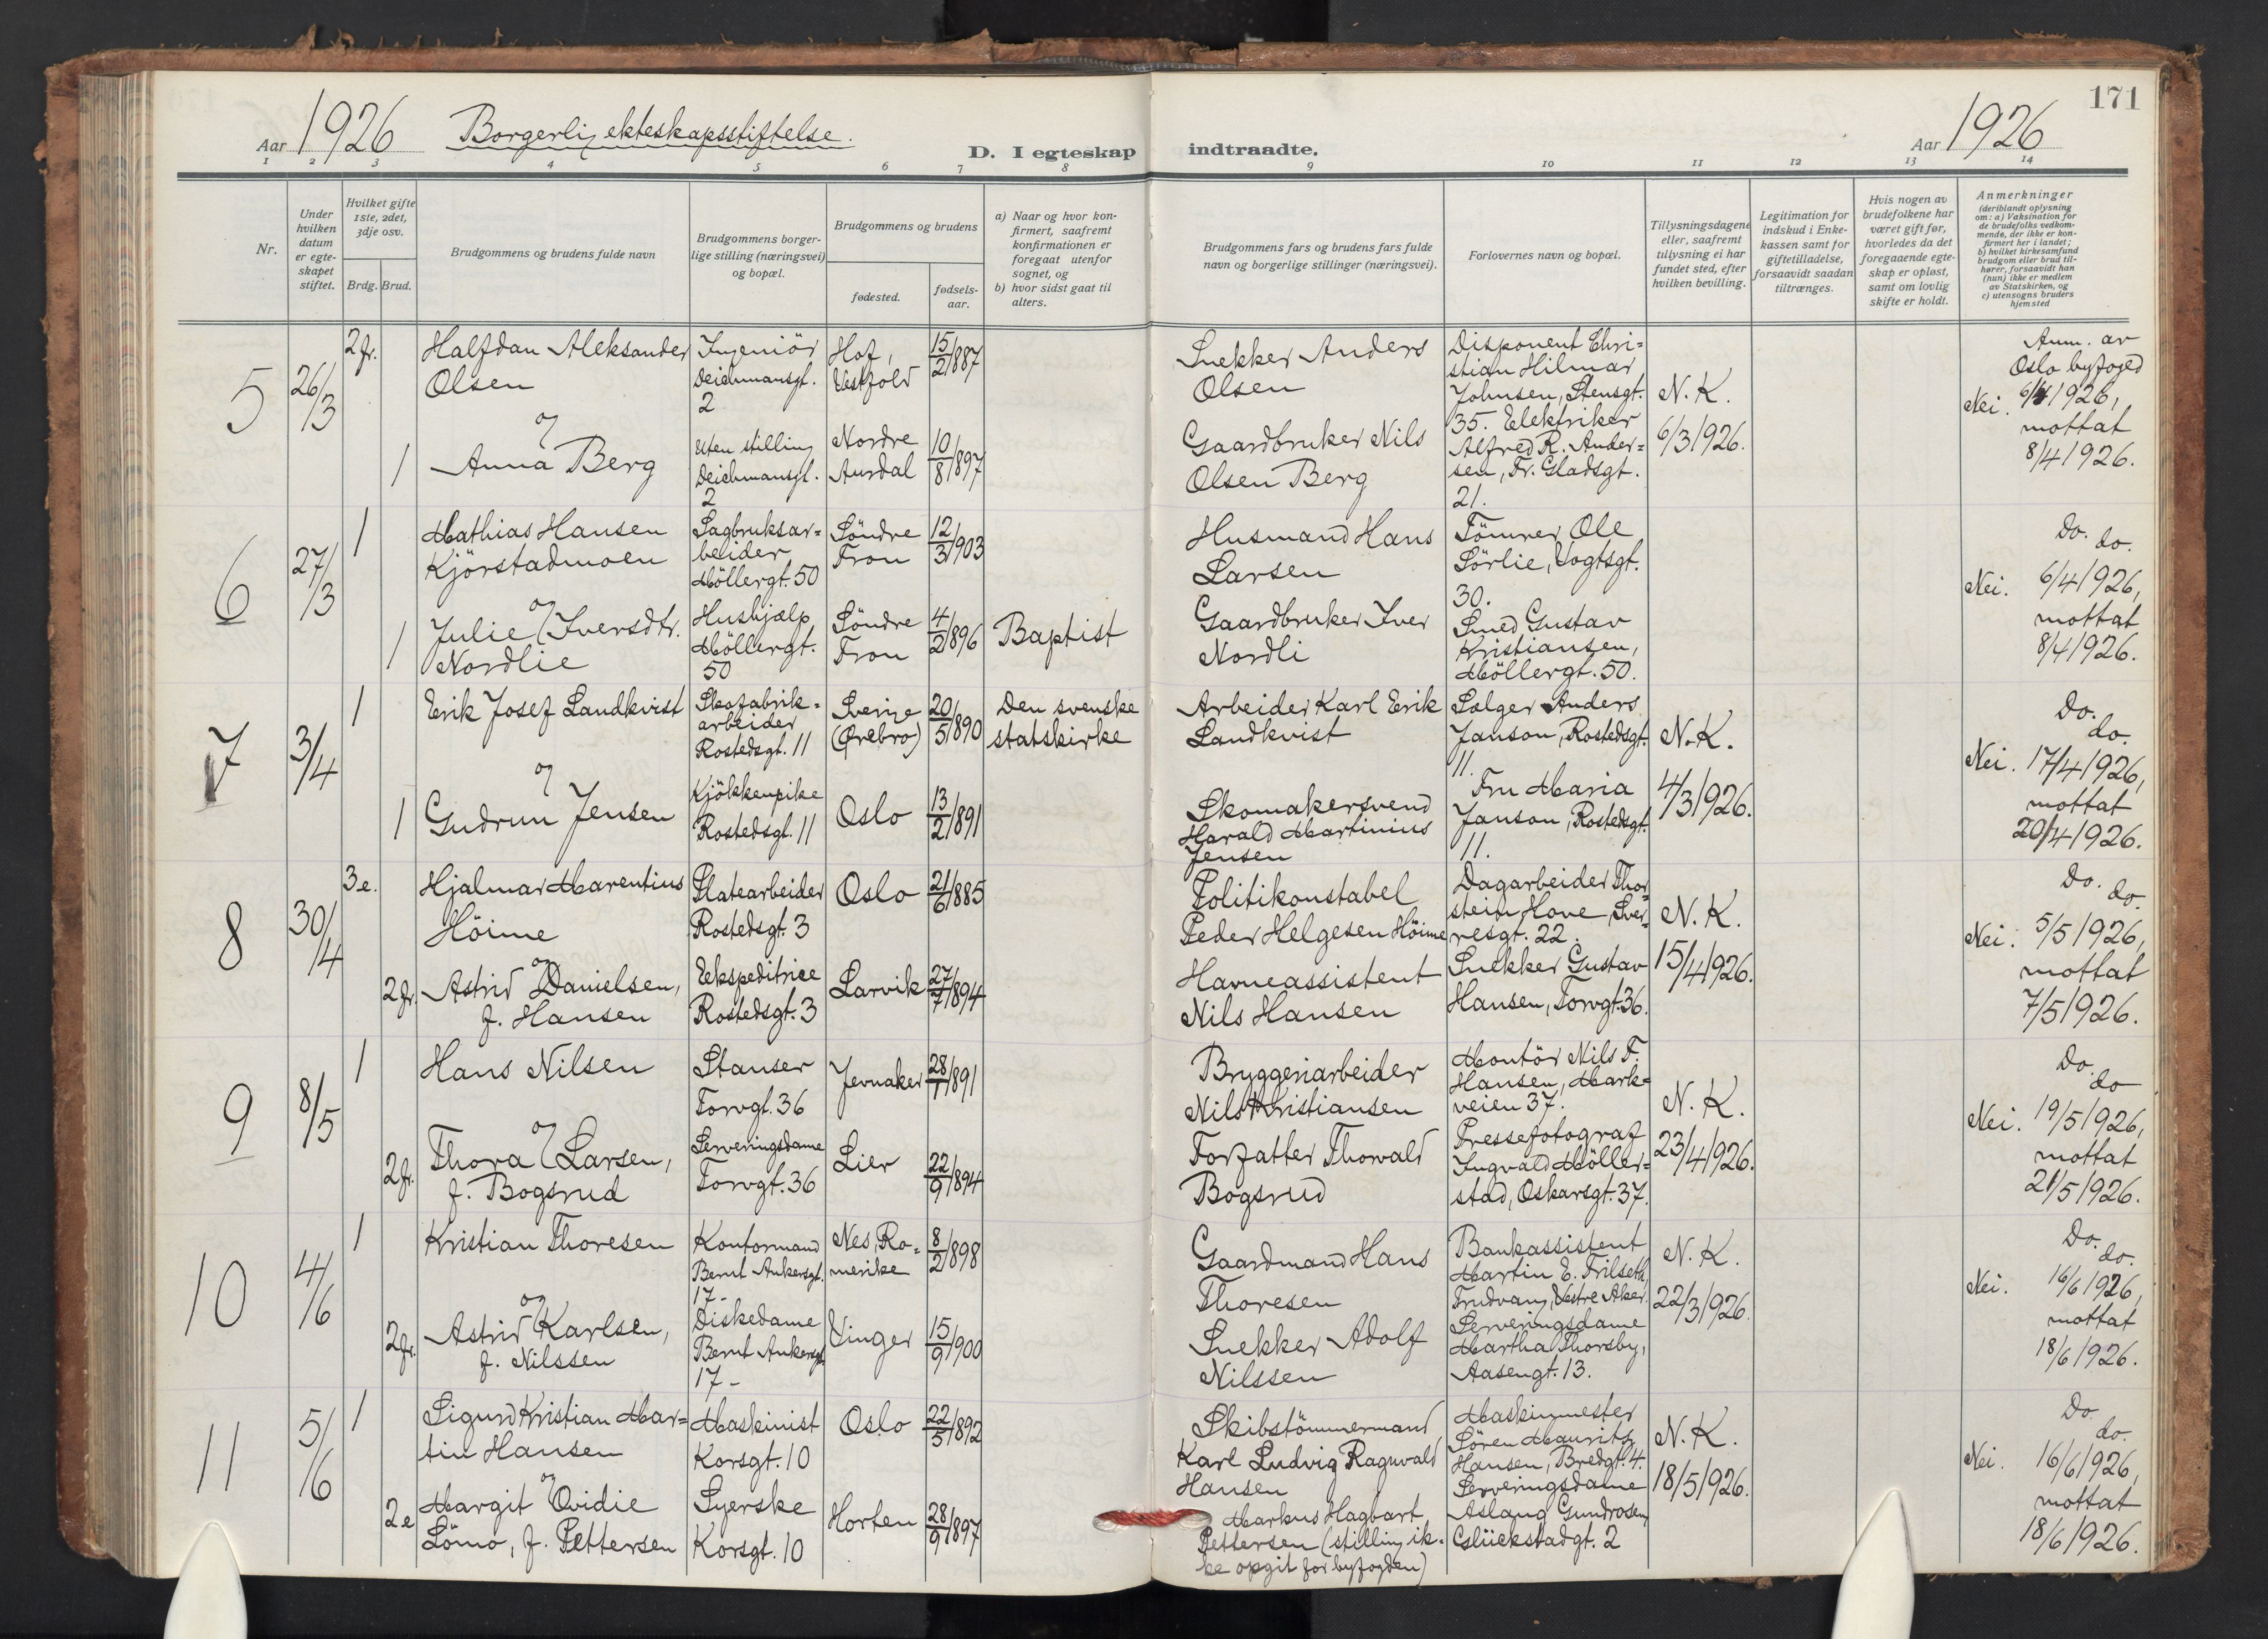 171
Aar 1926 Borgerlig ekteskapsstiftelse.
D. I egteskap indtraadte.
Aar 1926
1 2 3 4 5 6 7 8 9 10 11 12 13 14
Nr.
Under
hvilken
datum
er egte-
skapet
stiftet.
Hvilket gifte
1ste, 2det,
3dje osv.
Brdg. Brud.
Brudgommens og brudens fulde navn
Brudgommens borger-
lige stilling (næringsvei)
og bopæl.
Brudgommens og brudens
fødested.
fødsels-
aar.
a) Naar og hvor kon-
firmert, saafremt
konfirmationen er
foregaat utenfor
sognet, og
b) hvor sidst gaat til
alters.
Brudgommens fars og brudens fars fulde
navn og borgerlige stillinger (næringsvei).
Forlovernes navn og bopæl.
Tillysningsdagene
eller, saafremt
tillysning ei har
fundet sted, efter
hvilken bevilling.
Legitimation for
indskud i Enke-
kassen samt for
giftetilladelse,
forsaavidt saadan
tiltrænges.
Hvis nogen av
brudefolkene har
været gift før,
hvorledes da det
foregaaende egte-
skap er opløst,
samt om lovlig
skifte er holdt.
Anmerkninger
(deriblandt oplysning
om: a) Vaksination for
de brudefolks vedkom-
mende, der ikke er kon-
firmert her i landet;
b) hvilket kirkesamfund
brudgom eller brud til-
hører, forsaavidt han
(hun) ikke er medlem
av Statskirken, og
c) utensogns bruders
hjemsted
5
26/3
2 fr.
Halfdan Aleksander
Olsen
og
1
Anna Berg
Ingeniör
Deichmansgt.
2
Uten stilling
Deichmansgt.
2
Hof,
Vestfold
15/2 1887
Nordre
Aurdal
10/8 1897
Snekker Anders
Olsen
Gaardbruker Nils
Olsen Berg
Disponent Chri=
stian Hilmar
Johnsen, Stensgt.
35. Elektriker
Alfred R. Ander=
sen, Fr. Gladsgt.
21.
N. K.
6/3 1926.
Anm. av
Oslo byfoged
Nei. 6/4 1926,
mottat
8/4 1926.
6
27/3
1
Mathias Hansen
Kjörstadmoen
og
1
Julie Iversdtr.
Nordlie
Sagbruksar=
beider
Möllergt. 50
Hushjælp
Möllergt.
50
Söndre
Fron
12/3 1903
Söndre
Fron
4/2 1896
Baptist
Husmand Hans
Larsen
Gaardbruker Iver
Nordli
Tömrer Ole
Sörlie, Vogtsgt.
30.
Smed Gustav
Kristiansen,
Möllergt. 50.
Do. do.
Nei. 6/4 1926,
mottat
8/4 1926.
7
3/4
1
Erik Josef Landkvist
og
1
Gudrun Jensen
Skofabrik=
arbeider
Rostedsgt. 11
Kjökkenpike
Rostedsgt. 11
Sverige
(Ørebro)
20/5 1890
Oslo
13/2 1891
Den svenske
statskirke
Arbeider Karl Erik
Landkvist
Skomakersvend
Harald Martinius
Jensen
Selger Anders
Janson, Rostedsgt.
11.
Fru Maria
Janson, Rostedsgt.
11.
N. K.
4/3 1926.
Do. do.
Nei. 17/4 1926,
mottat
20/4 1926.
8
30/4
3 e.
Hjalmar Marentius
Höime
og
2 fr.
Astrid Danielsen,
f. Hansen
Platearbeider
Rostedsgt. 3
Ekspeditrice
Rostedsgt. 3
Oslo
21/6 1885
Larvik
27/7 1894
Politikonstabel
Peder Helgesen Höime
Havneassistent
Nils Hansen
Dagarbeider Thor
stein Hove, Sver=
resgt. 22.
Snekker Gustav
Hansen, Torvgt. 36.
N. K.
15/4 1926.
Do. do.
Nei. 5/5 1926,
mottat
7/5 1926.
9
8/5
1
Hans Nilsen
og
2 fr.
Thora Larsen,
f. Bogsrud
Stanser
Torvgt. 36
Serveringsdame
Torvgt. 36
Jevnaker
28/1 1891
Lier
22/9 1894
Bryggeriarbeider
Nils Kristiansen
Forfatter Thorvald
Bogsrud
Montör Nils F.
Hansen, Mark=
veien 37.
Pressefotograf
Ingvald Möller=
stad, Oskarsgt. 37.
N. K.
23/4 1926.
Do. do
Nei. 19/5 1926,
mottat
21/5 1926.
10
4/6
1
Kristian Thoresen
og
2 fr.
Astrid Karlsen,
f. Nilssen
Kontormand
Bernt Ankersgt.
17-
Diskedame
Bernt Ankersgt.
17-
Nes, Ro=
merike
8/2 1898
Vinger
15/9 1900
Gaardmand Hans
Thoresen
Snekker Adolf
Nilssen
Bankassistent
Martin E. Frilseth,
Frudvang, Vestre Aker.
Serveringsdame
Martha Thorsby,
Aasengt. 13.
N. K.
22/3 1926.
Do. do.
Nei. 16/6 1926,
mottat
18/6 1926.
11
5/6
1
Sigurd Kristian Mar=
tin Hansen
og
2 e
Margit Ovidie
Lömo, f. Pettersen
Maskinist
Korsgt. 10
Syerske
Korsgt. 10
Oslo
22/5 1892
Horten
28/9 1897
Skibstömmermand
Karl Ludvig Ragnvald
Hansen
Markus Hagbart
Pettersen (stilling ik-
ke opgit for byfogden)
Maskinmester
Sören Mauritz
Hansen, Bredgt. 4.
Serveringsdame
Aslaug Gundrosen,
Glückstadgt. 2
N. K.
18/5 1926.
Do. do.
Nei. 16/6 1926,
mottat
18/6 1926.